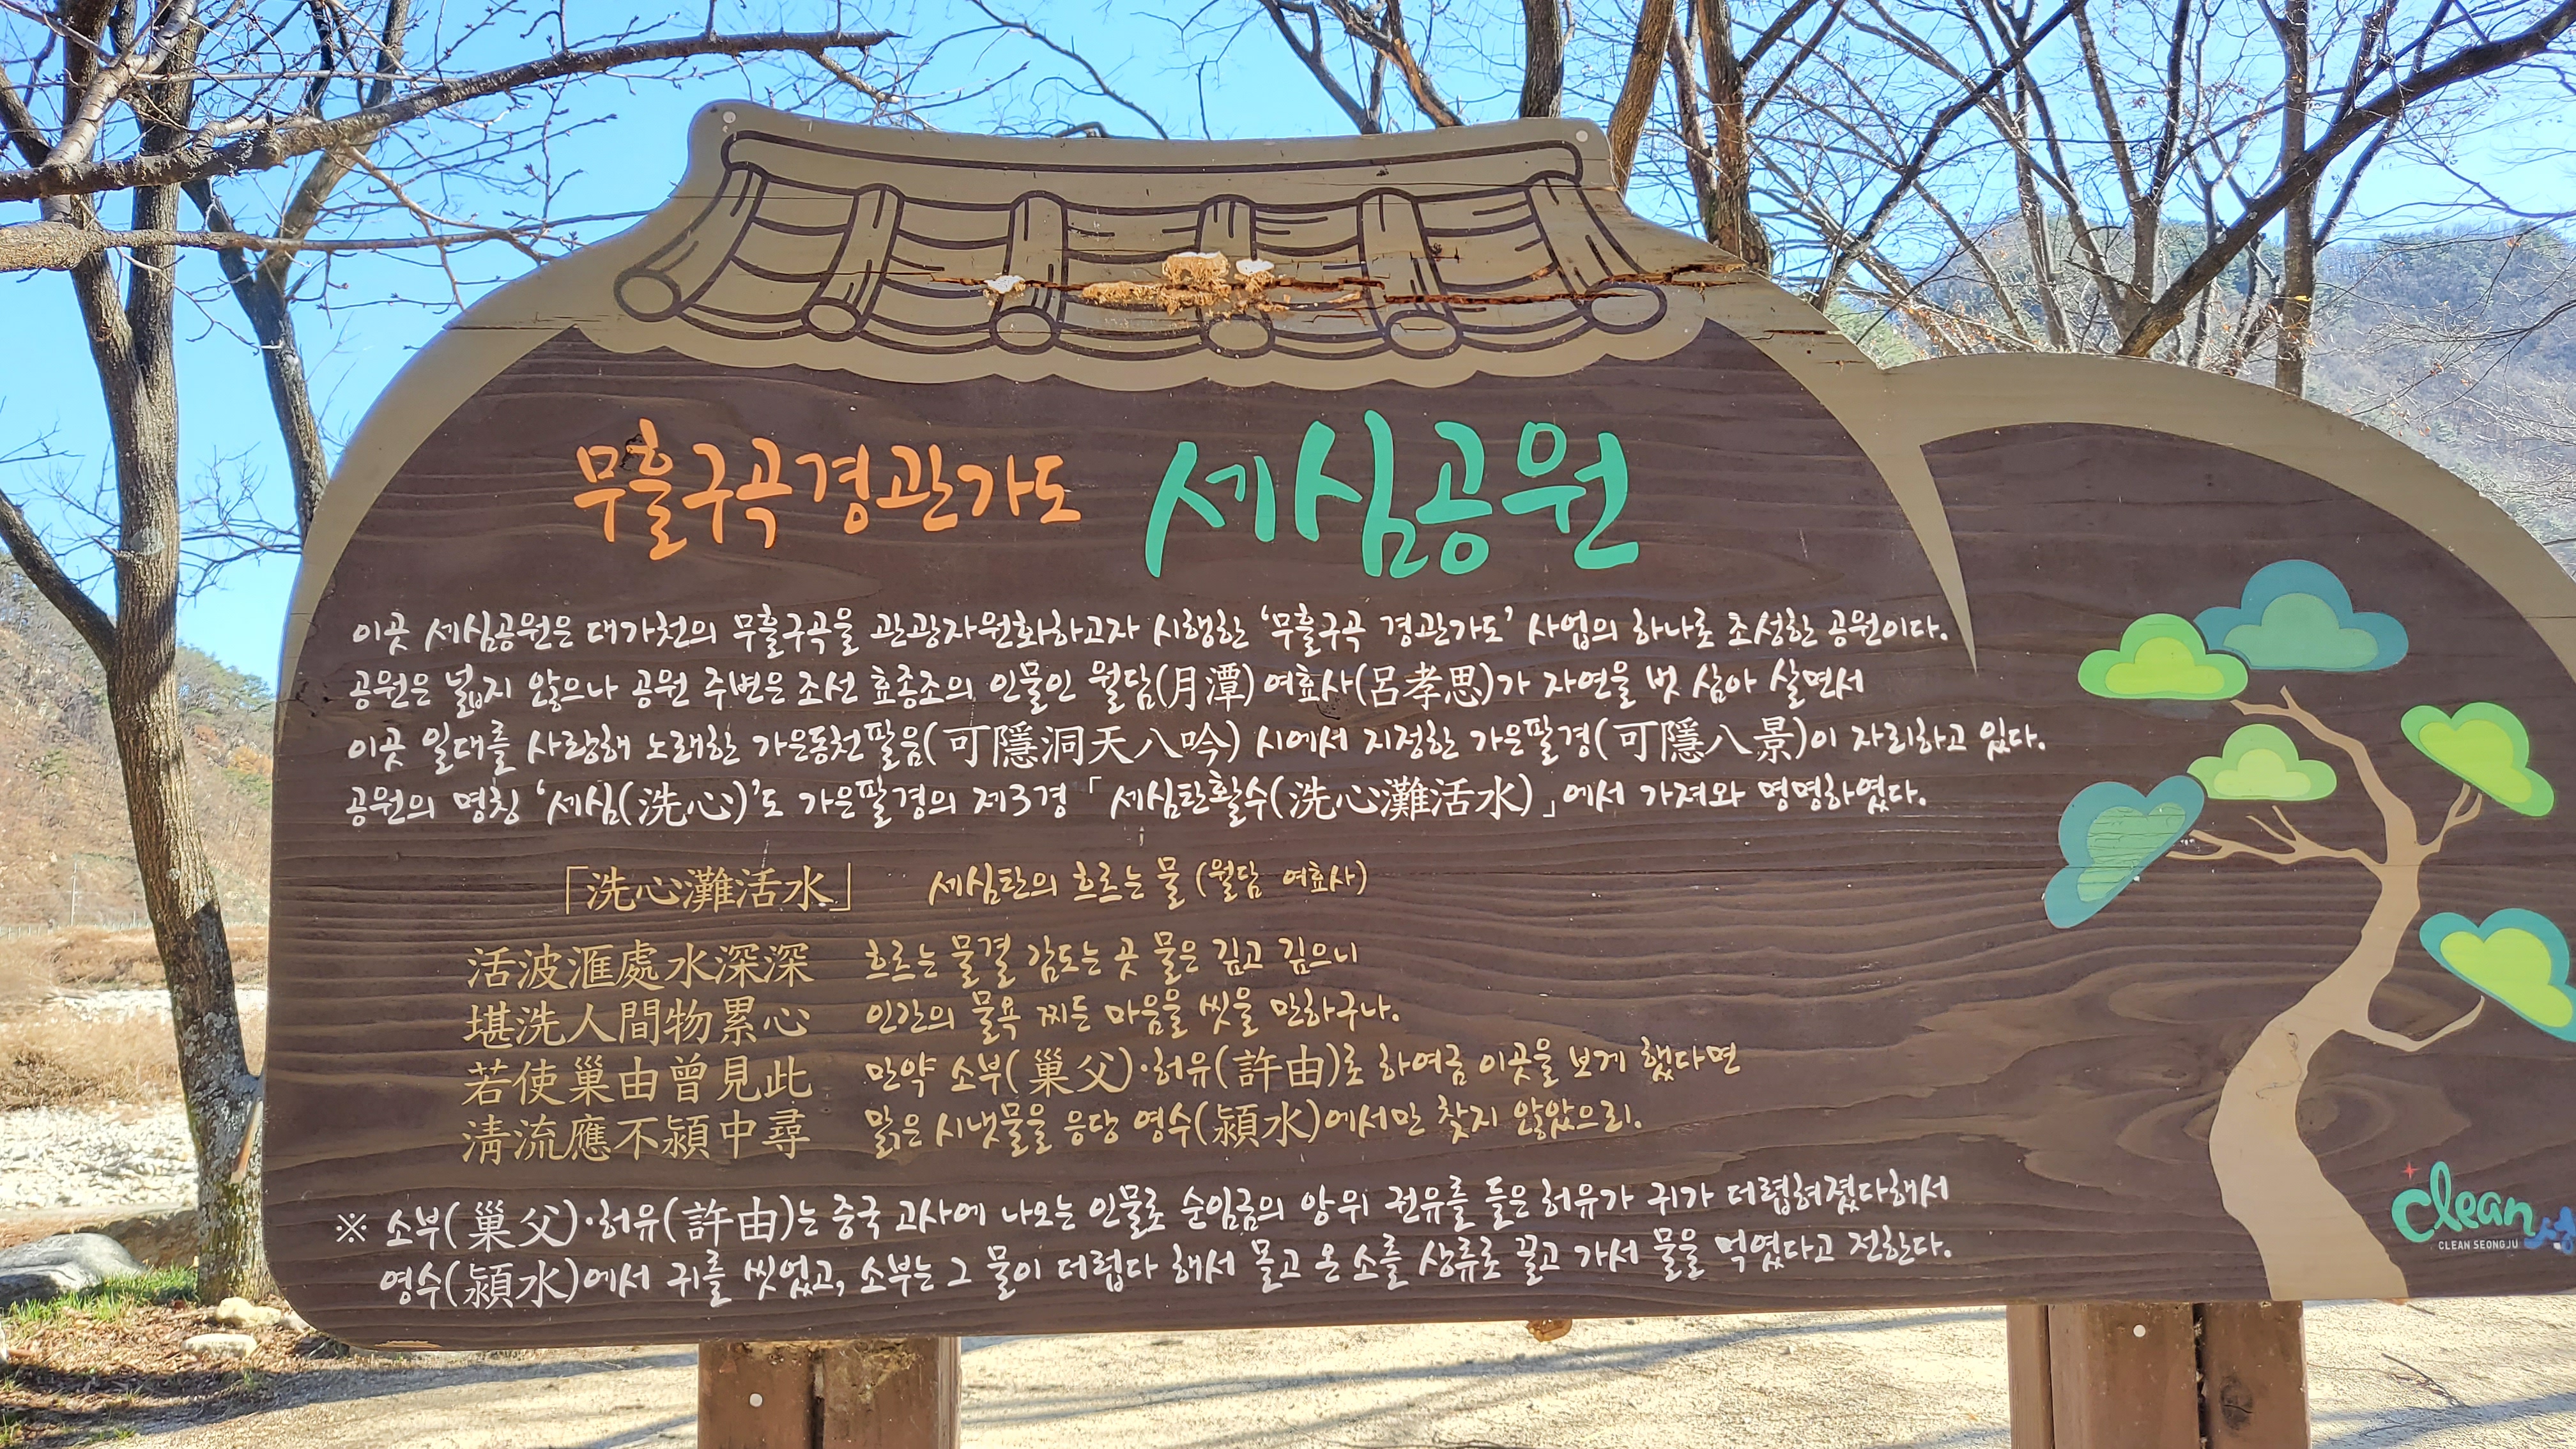 무흘구곡경관가도 세심공원
이곳 세심공원은 대가천의 무흘구곡을 관광자원화하고자 시행한 '무흘구곡 경관가도' 사업의 하나로 조성한 공원이다.
공원은 넓지 않으나 공원 주변은 조선 효종조의 인물인 월담(月潭) 여효사(呂孝思)가 자연을 벗 삼아 살면서
이곳 일대를 사랑해 노래한 가은동천팔음(可隱洞天八吟) 시에서 지정한 가은팔경(可隱八景)이 자리하고 있다.
공원의 명칭 '세심(洗心)'도 가은팔경의 제3경 「세심탄활수(洗心灘活水)」에서 가져와 명명하였다.
「洗心灘活水」 세심탄의 흐르는 물 (월담 여효사)
活波滙處水深深 흐르는 물결 감도는 곳 물은 깊고 깊으니
堪洗人間物累心 인간의 물욕 찌든 마음을 씻을 만하구나.
若使巢由曾見此 만약 소부(巢父)·허유(許由)로 하여금 이곳을 보게 했다면
淸流應不潁中尋 맑은 시냇물을 응당 영수(潁水)에서만 찾지 않았으리.
※ 소부(巢父)·허유(許由)는 중국 고사에 나오는 인물로 순임금의 왕위 권유를 들은 허유가 귀가 더럽혀졌다해서
영수(潁水)에서 귀를 씻었고, 소부는 그 물이 더럽다 해서 몰고 온 소를 상류로 끌고 가서 물을 먹였다고 전한다.
clean
CLEAN SEONGJU